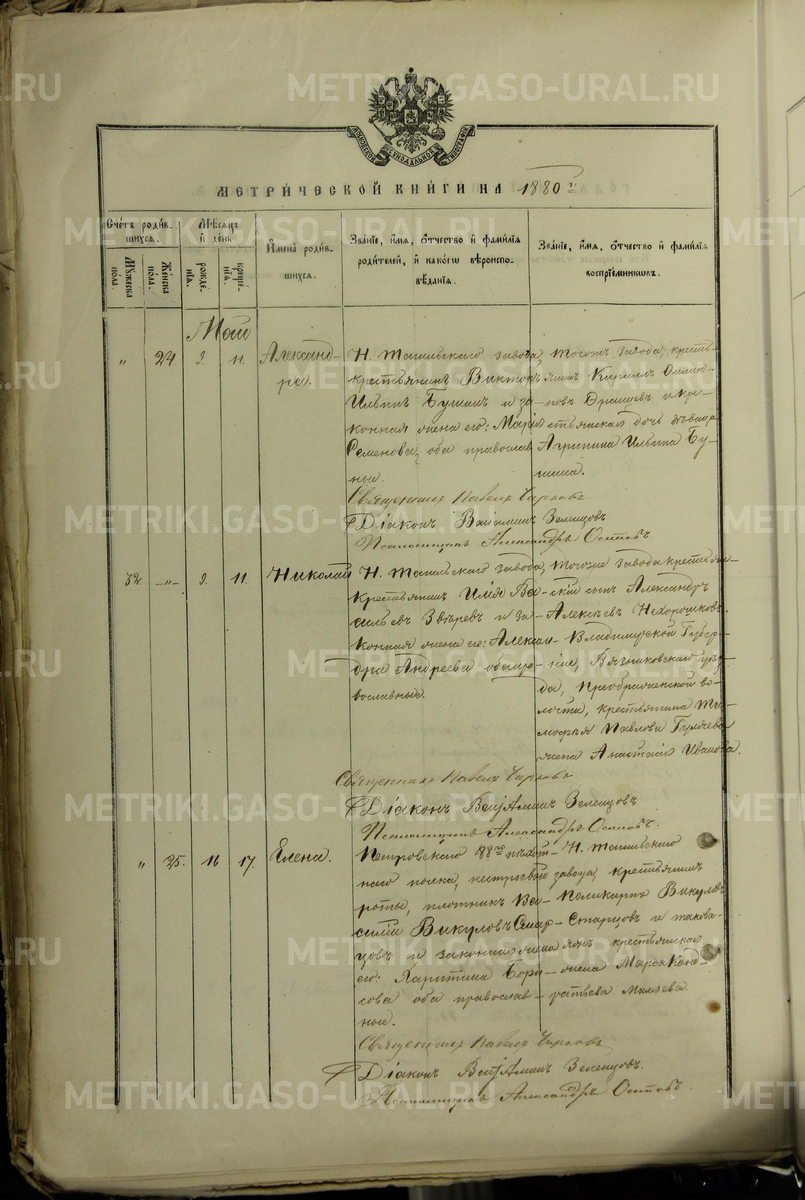 МОСКОВСКОЙ СУНОДАЛЬНОЙ ТИПОГРАФІИ
МЕТРИЧЕСКОЙ КНИГИ НА 1880 г.
Счетъ родив-
шихся.
Мѣсяцъ
и день
Имена родив-
шихся.
Званіе, имя, отчество и фамилія
родителей, и какого вѣроиспо-
вѣданія.
Званіе, имя, отчество и фамилія
воспріемниковъ.
Мужеска
пола.
Женска
пола.
рожде-
нія.
креще-
нія.
Май
„ 24. 9. 11.
Александ-
ра.
Н. Тагильскаго завода,
крестьянинъ Викторъ
Ильинъ Бушинъ и за-
конная жена его: Марія
Семенова, оба православ-
ные.
Тогожъ завода, кресть-
янинъ Кириллъ
и кре-
стьянская дочь дѣвица
Агрипина Ильина Бу-
шина.
Священникъ Павелъ
Діаконъ Веніаминъ Зеленцовъ
Псаломщикъ Александръ Осиповъ
32. -„- 9. 11.
Николай
Н. Тагильскаго завода,
крестьянинъ Илія Ва-
сильевъ Звѣревъ и за-
конная жена его: Алексан-
дра Андреева оба пра-
вославные.
тогоже завода крестьян-
скій сынъ Александръ
Алексѣевъ Нехорошковъ.
Владимірской Губер-
ніи, Вязниковскаго уѣз-
да, Преображенской во-
лости, крестьянина Ти-
мофея Павлова Гуляева
жена Анастасія Иванова.
Священникъ Павелъ
Діаконъ Веніаминъ Зеленцовъ
Псаломщикъ Александръ Осиповъ.
„ 25. 16 17.
Елена.
Петровскаго 88го пѣхот-
наго полка, нестроевой
роты, плотникъ Ва-
силій Викуловъ Стар-
цовъ и законная жена
его: Харитина Бори-
сова оба православ-
ные.
Н. Тагильскаго
завода, крестьянинъ
Поликарпъ Викуловъ
Старцовъ и такова-
гожъ крестьянская
жена Марѳа Конд-
ратьева Миляева.
Священникъ Павелъ
Діаконъ Веніаминъ Зеленцовъ.
Псаломщикъ Александръ Осиповъ
METRIKI.GASO-URAL.RU